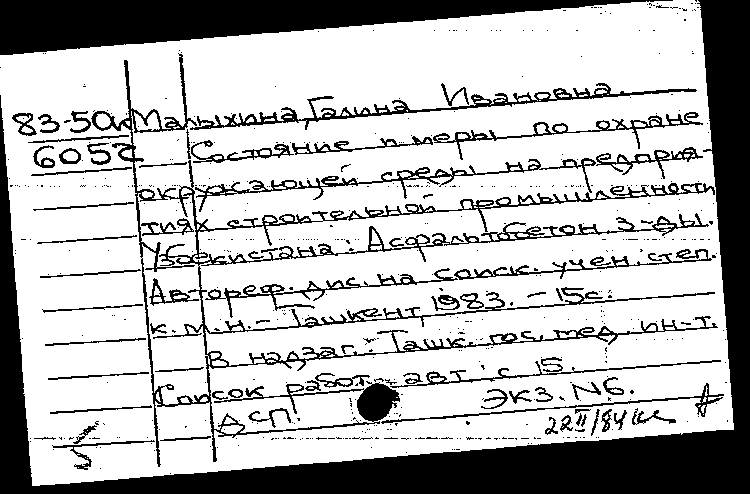 83-50к Малыхина, Галина Ивановна.
6052 Состояние и меры по охране
окружающей среды на предприя-
тиях строительной промышленности
Узбекистана: Асфальтобетон. з-ды.
Автореф. дис. на соиск. учен. степ.
к.м.н. - Ташкент, 1983. - 15с.
В надзаг.: Ташк. гос. мед. ин-т.
Список работ авт.: с 15.
ДСП! ЭКЗ. N6.
22 II/84